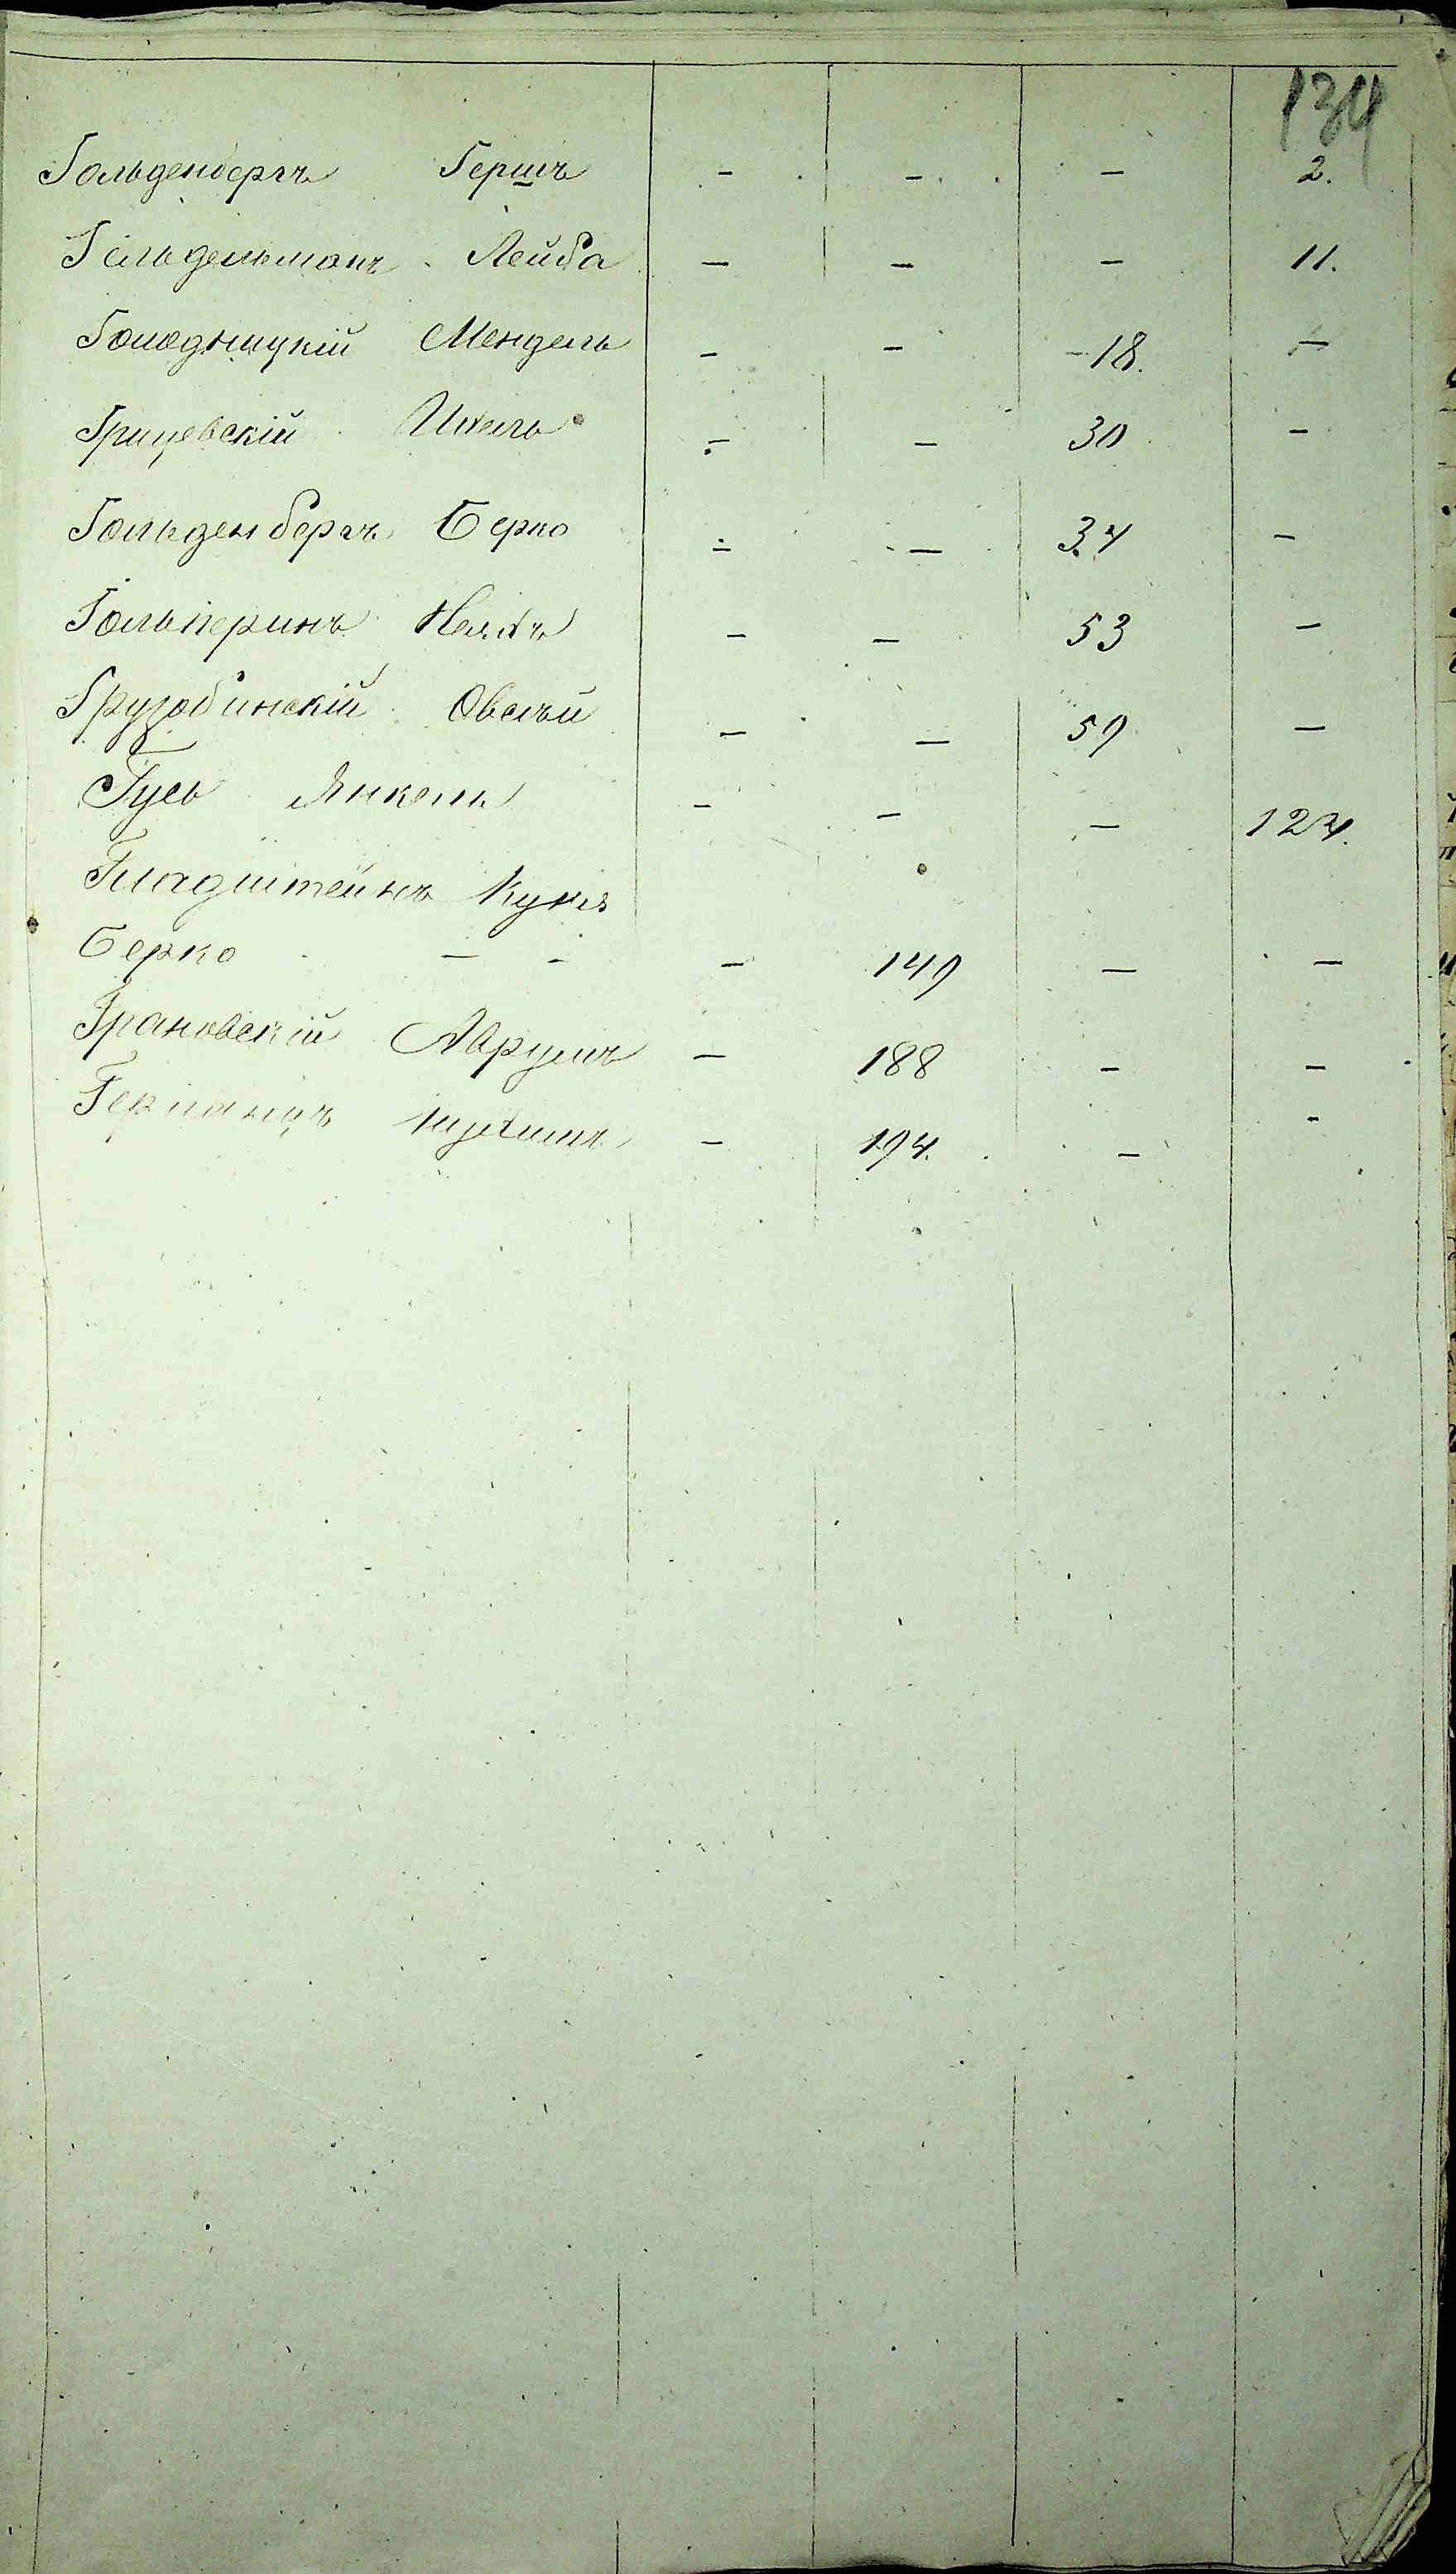 134
Гольденбергъ Гершъ - - - 2.
Гельдельманъ Лейба - - - 11.
Голодницкій Мендель - - 18. -
Грицевскій Ихель - - 30 -
Гольденбергъ Берко - - 34 -
Гольперинъ - - 53 -
Грузобинскій Овсѣй - - 59 -
Гусь Янкель - - - 124.
Гладштейнъ Куна
Берко - - - 149 - -
Грановскій Аврумъ - 188 - -
Германъ - 194. - -